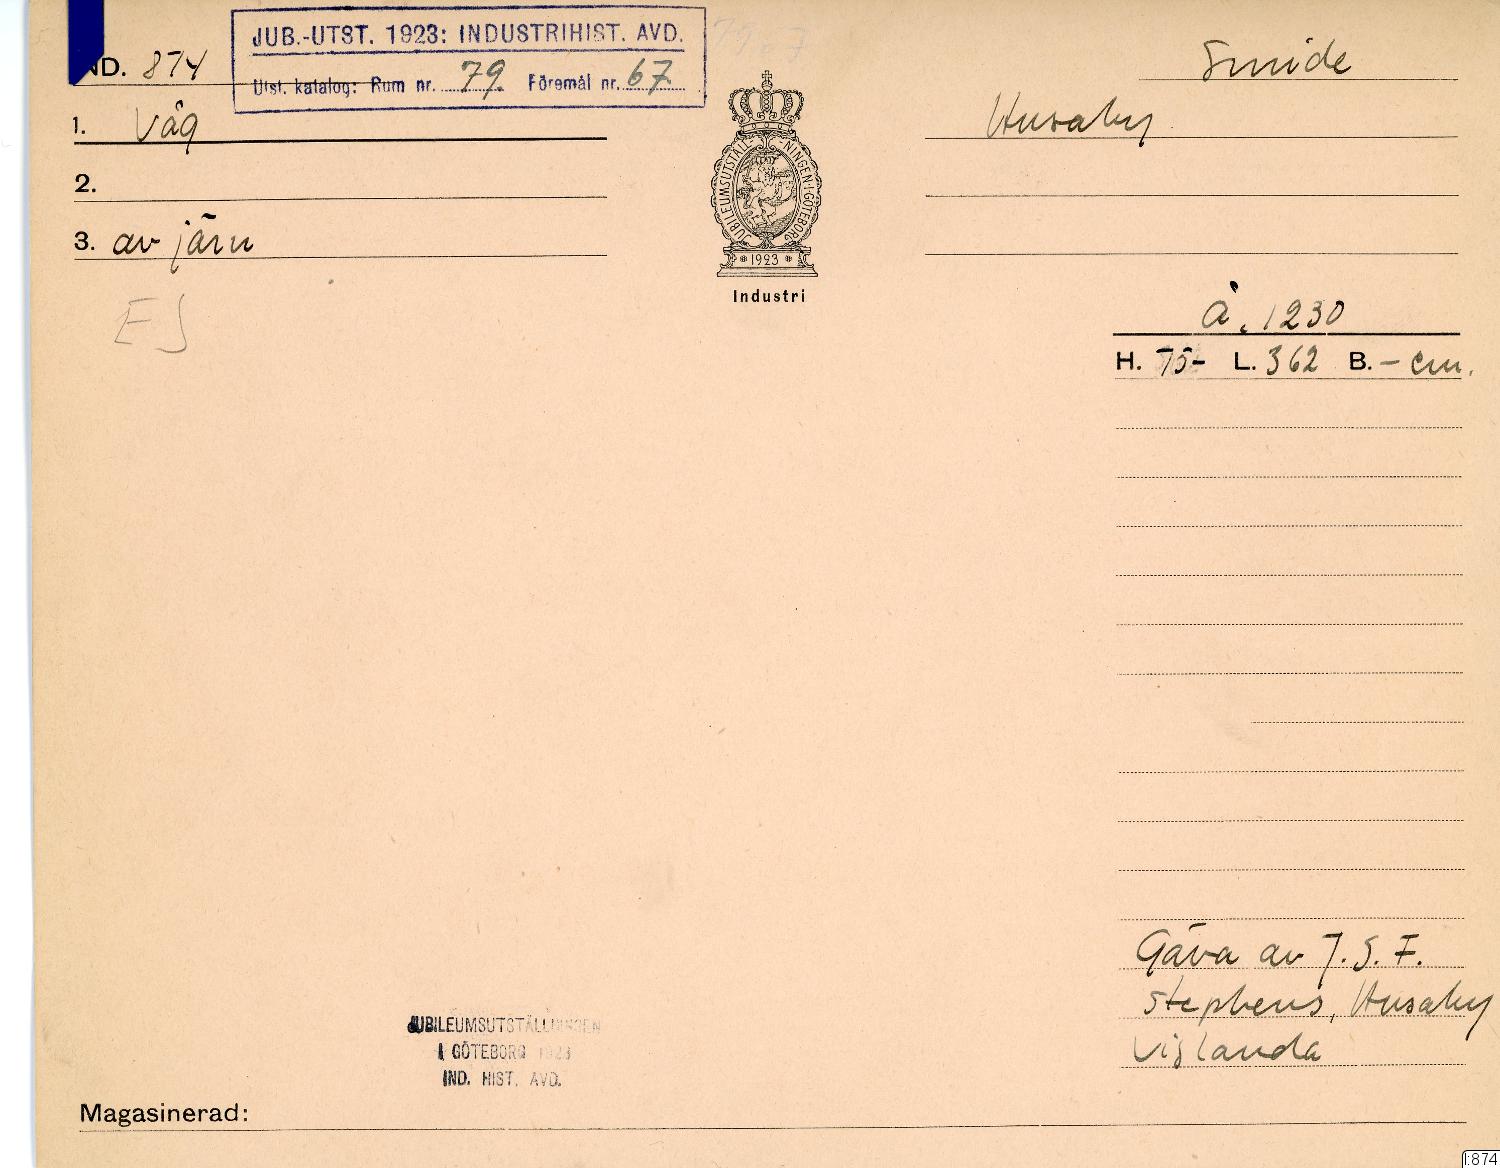 JUB.-UTST. 1923: INDUSTRIHIST. AVD.
Utst. katalog: Rum nr. 79. Föremål nr. 67.
ND. 874
Smide
1. Våg
Husaby
2.
3. av järn
JUBILEUMSUTSTÄLLNINGEN I GÖTEBORG
1923
Industri
EJ
Å. 1230
H. 75- L. 362 B. - cm.
Gåva av J. S. F.
Stephens, Husaby
Vislanda
JUBILEUMSUTSTÄLLNINGEN
I GÖTEBORG 1923
IND. HIST. AVD.
Magasinerad:
I:874